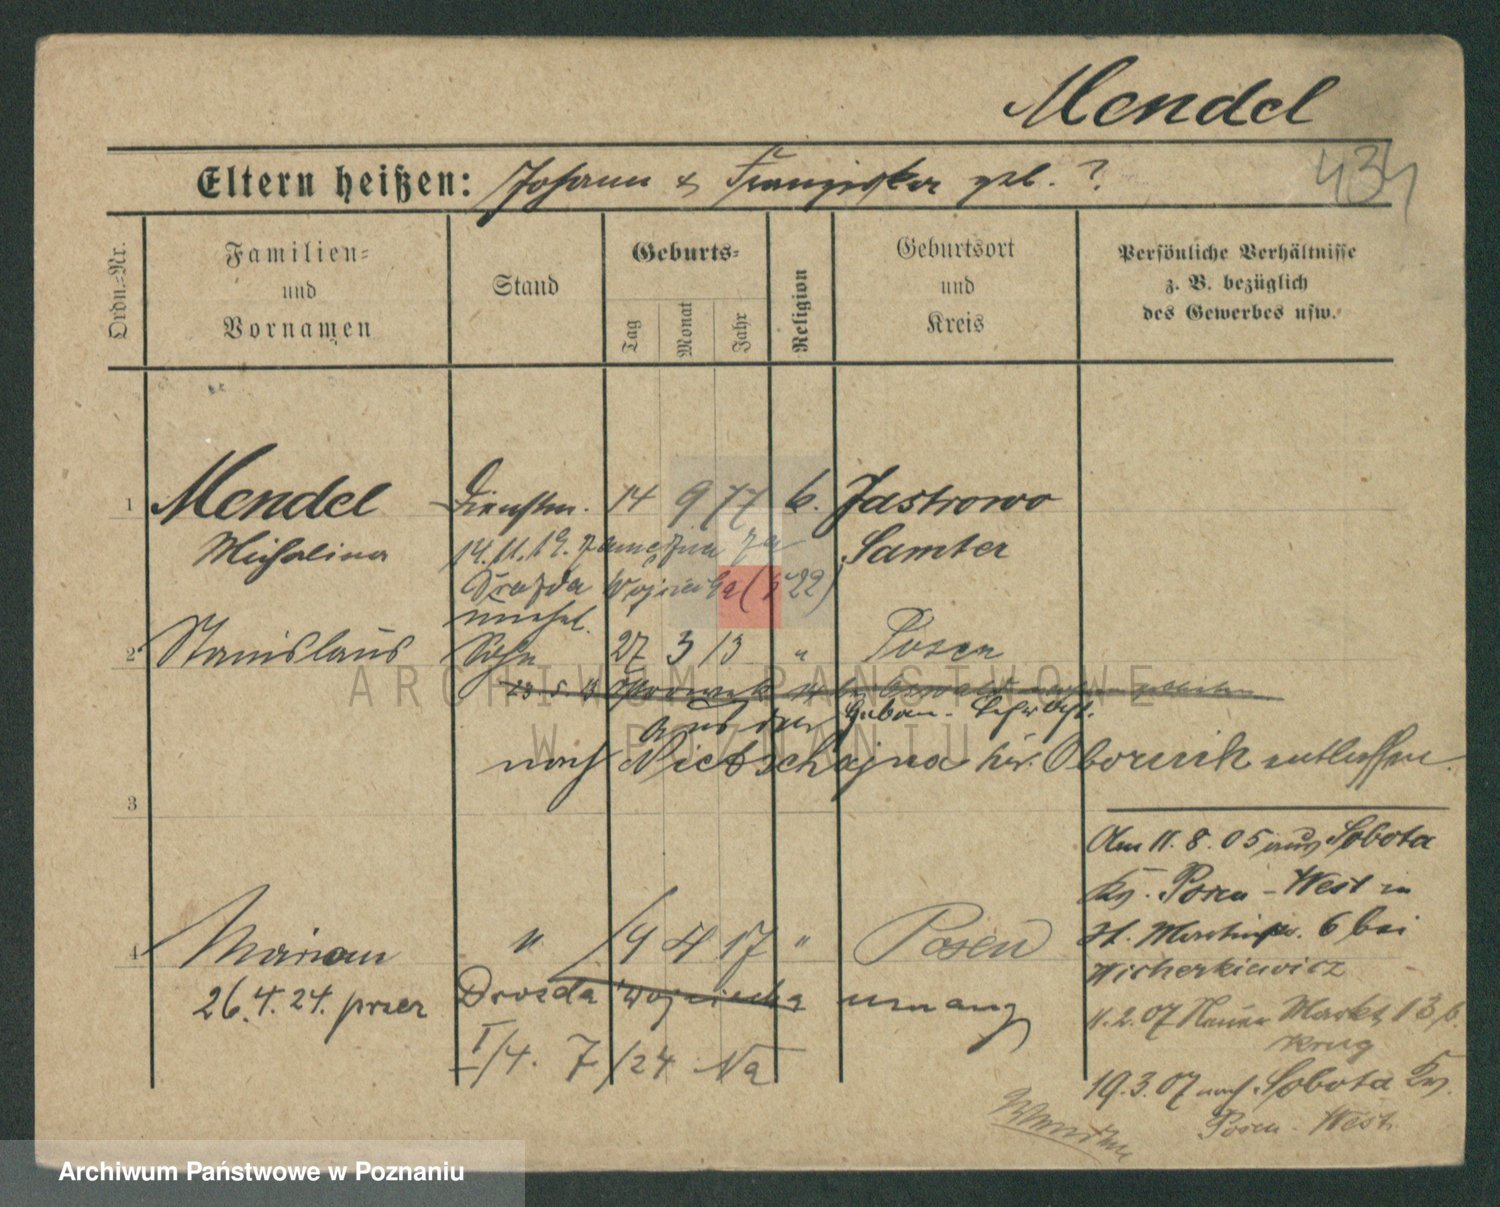 Mendel
434
Eltern heißen: Johann & Franziska geb. ?
Ordn.-Nr.
Familien-
und
Vornamen
Stand
Geburts-
Tag
Monat
Jahr
Religion
Geburtsort
und
Kreis
Persönliche Verhältnisse
z. B. bezüglich
des Gewerbes usw.
1 Mendel Dienstm. 14 9 77 k. Jastrowo
Michalina 14.11.19. zamężna za Samter
Drozda Wojciecha
unehel.
2 Stanislaus Sohn 27 3 13 " Posen
aus der
nach kr. Obornik entlassen.
3
4 Marian " 19 4 17 " Posen
26.4.24. przez Drozda Wojciecha uznany
I/4. 7/24 Na
Am 11.8.05 aus Sobota
Kr. Posen-West in
St. Martinstr. 6 bei
Wicherkiewicz
11.2.07 Neuer Markt 13 b.
Krug
19.3.07 nach Sobota Kr.
Posen-West.
ARCHIWUM PAŃSTWOWE
W POZNANIU
Archiwum Państwowe w Poznaniu